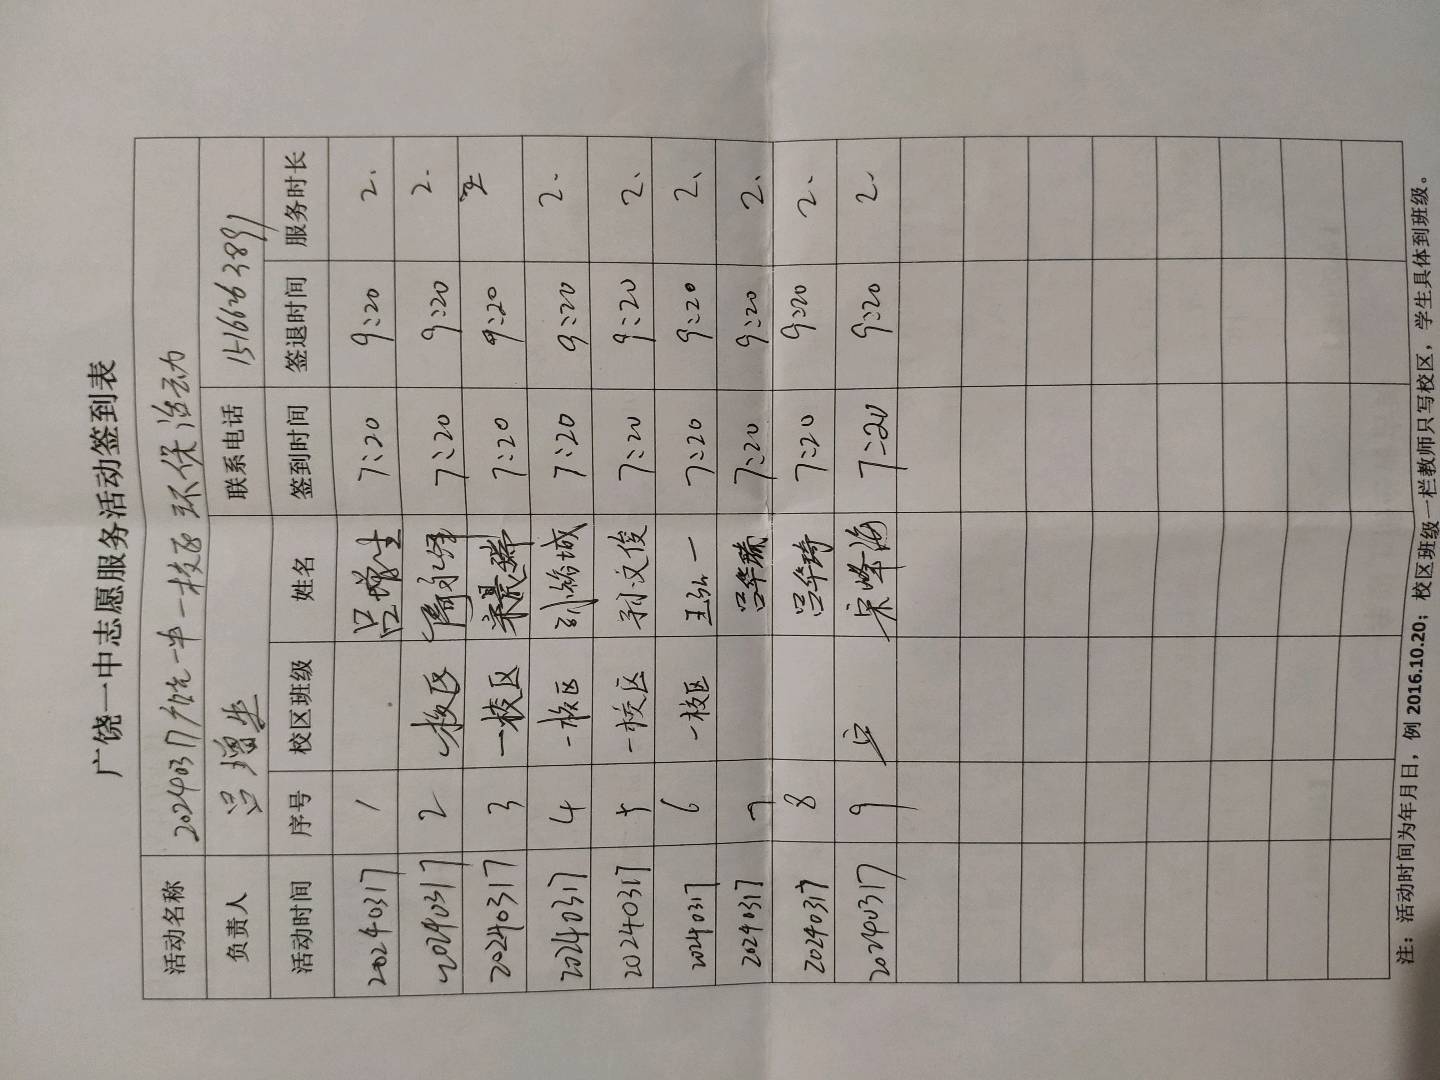 广饶一中志愿服务活动签到表
活动名称 20240317广饶一中一校区环保活动
负责人 吕增生 联系电话
活动时间 序号 校区班级 姓名 签到时间 签退时间 服务时长
20240317 1 吕增生 7:20 9:20 2.
20240317 2 一校区 7:20 9:20 2.
20240317 3 一校区 7:20 9:20 2
20240317 4 一校区 7:20 9:20 2.
20240317 5 一校区 孙文俊 7:20 9:20 2、
20240317 6 一校区 7:20 9:20 2、
20240317 7 吕华腾 7:20 9:20 2、
20240317 8 吕华琦 7:20 9:20 2.
20240317 9 宋峰海 7:20 9:20 2.
注：活动时间为年月日，例 2016.10.20；校区班级一栏教师只写校区，学生具体到班级。